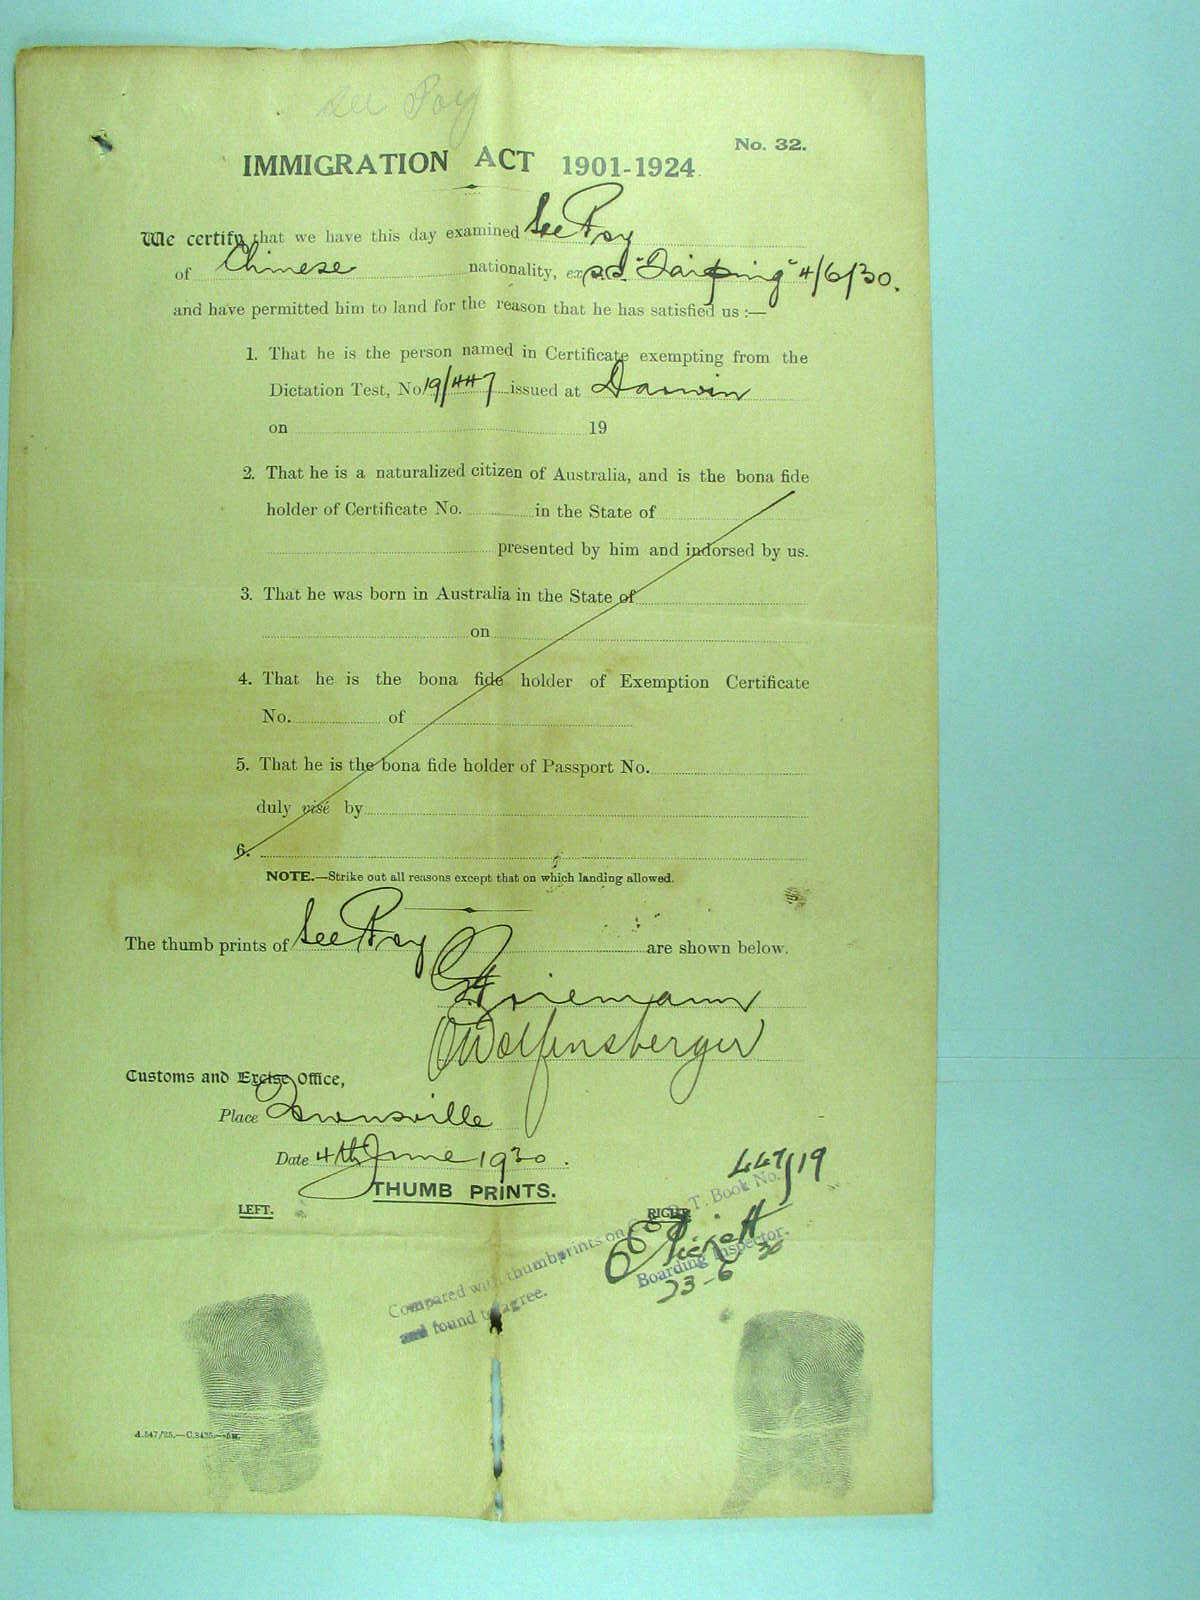 See Poy
No. 32.
IMMIGRATION ACT 1901-1924.
We certify that we have this day examined See Poy
of Chinese nationality, ex s.s. "Taiping" 4/6/30.
and have permitted him to land for the reason that he has satisfied us :—
1. That he is the person named in Certificate exempting from the
Dictation Test, No. 19/447 issued at Darwin
on 19
2. That he is a naturalized citizen of Australia, and is the bona fide
holder of Certificate No. in the State of
presented by him and indorsed by us.
3. That he was born in Australia in the State of
on
4. That he is the bona fide holder of Exemption Certificate
No. of
5. That he is the bona fide holder of Passport No.
duly visé by
6.
NOTE.—Strike out all reasons except that on which landing allowed.
The thumb prints of See Poy are shown below.
Wolfensberger
Customs and Excise Office,
Place Townsville
Date 4th June 1930.
THUMB PRINTS.
447/19
LEFT. RIGHT.
Compared with thumbprints on T. Book No.
and found to agree.
Pickett
Boarding Inspector.
23-6 30
A.547/25.—C.3435.—5M.